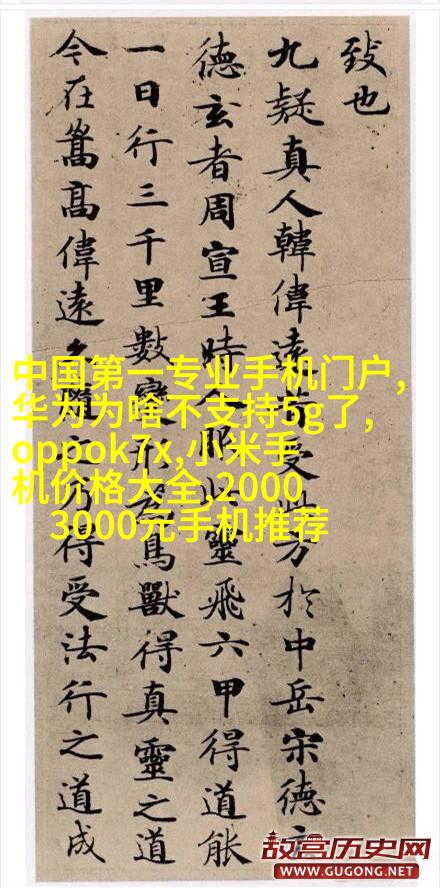 致也
九疑真人韓偉遠昔受此方於中岳宋德玄
德玄者周宣王時人服此靈飛六甲得道能
一日行三千里數變形為鳥獸得真靈之道
今在嵩高偉遠久隨之乃得受法行之道成
中国第一专业手机门户,
华为为啥不支持5g了,
oppok7x,小米手
机价格大全,2000
3000元手机推荐
故宫历史网
WWW.GUGONG.NET